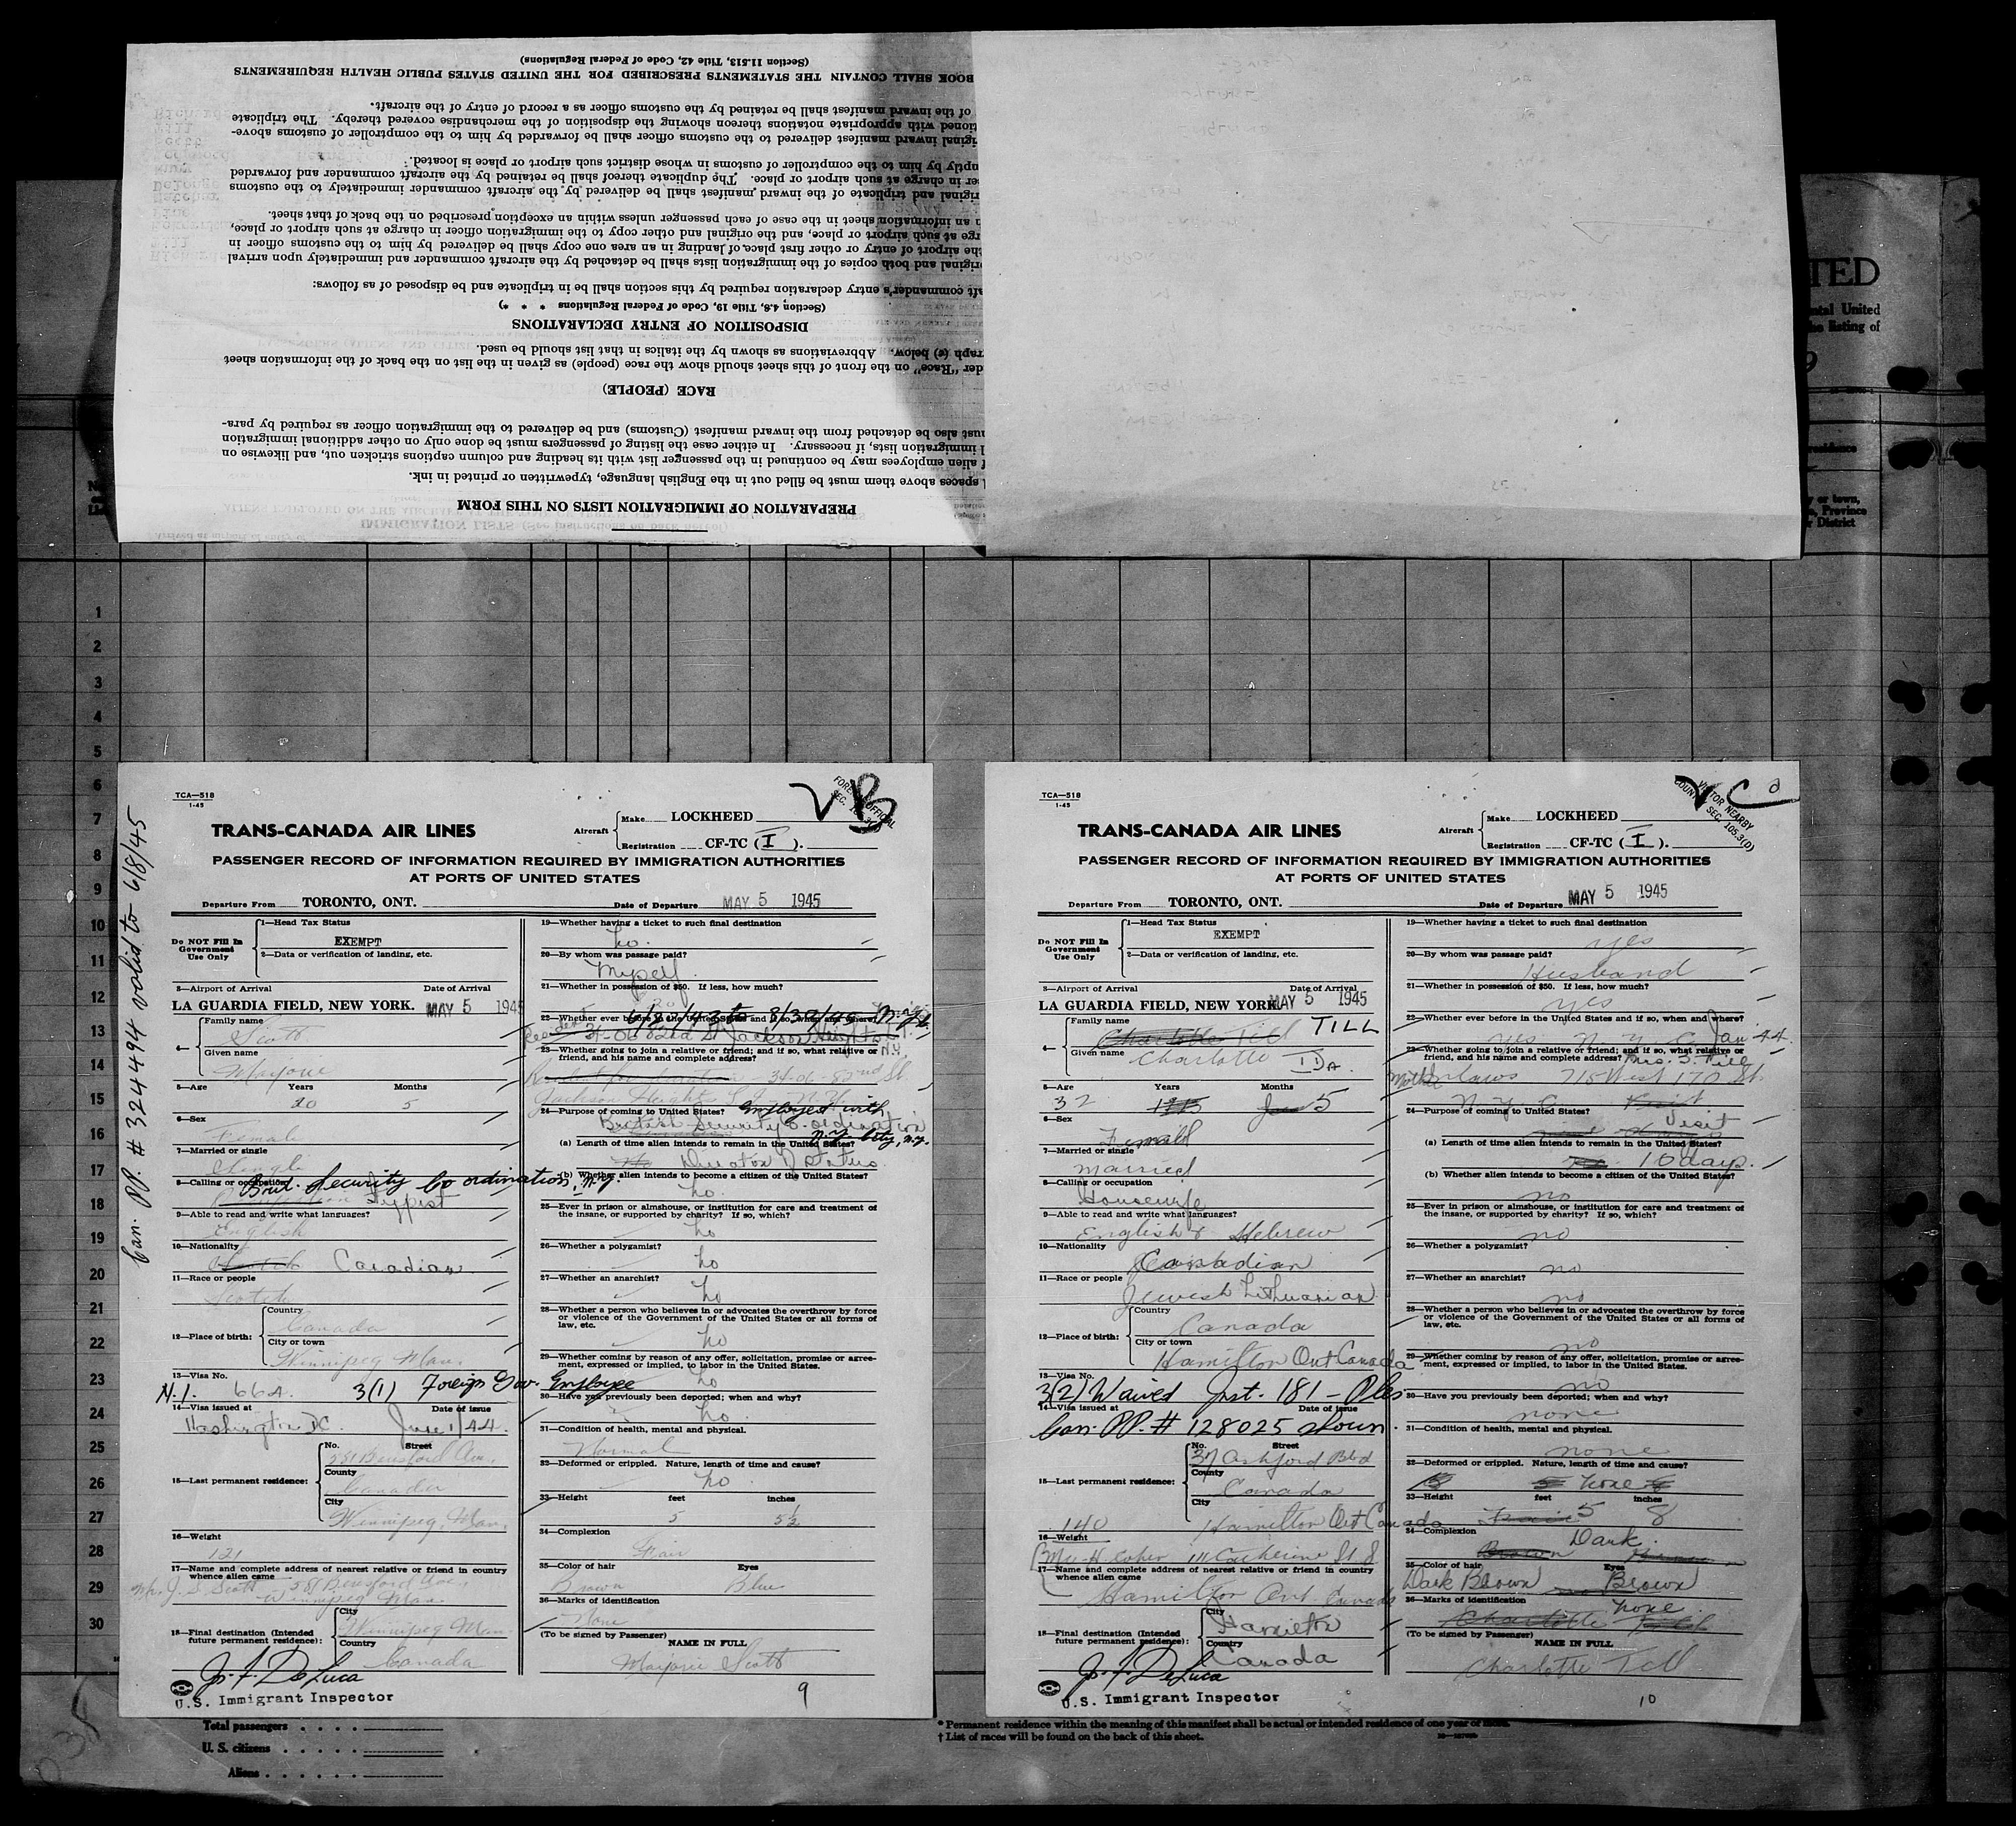 (Section 11.513, Title 42, Code of Federal Regulations)
BOOK SHALL CONTAIN THE STATEMENTS PRESCRIBED FOR THE UNITED STATES PUBLIC HEALTH REQUIREMENTS
of the inward manifest shall be retained by the customs officer as a record of entry of the aircraft.
tioned with appropriate notations thereon showing the disposition of the merchandise covered thereby. The triplicate
iginal inward manifest delivered to the customs officer shall be forwarded by him to the comptroller of customs above-
mptly by him to the comptroller of customs in whose district such airport or place is located.
er in charge at such airport or place. The duplicate thereof shall be retained by the aircraft commander and forwarded
riginal and triplicate of the inward manifest shall be delivered by the aircraft commander immediately to the customs
n an information sheet in the case of each passenger unless within an exception prescribed on the back of that sheet.
rge at such airport or place, and the original and other copy to the immigration officer in charge at such airport or place,
the airport of entry or other first place of landing in an area one copy shall be delivered by him to the customs officer in
original and both copies of the immigration lists shall be detached by the aircraft commander and immediately upon arrival
aft commander's entry declaration required by this section shall be in triplicate and be disposed of as follows:
(Section 4.8, Title 19, Code of Federal Regulations * * *)
DISPOSITION OF ENTRY DECLARATIONS
graph (e) below. Abbreviations as shown by the italics in that list should be used.
der "Race" on the front of this sheet should show the race (people) as given in the list on the back of the information sheet
RACE (PEOPLE)
ust also be detached from the inward manifest (Customs) and be delivered to the immigration officer as required by para-
l immigration lists, if necessary. In either case the listing of passengers must be done only on other additional immigration
f alien employees may be continued in the passenger list with its heading and column captions stricken out, and likewise on
l spaces above them must be filled out in the English language, typewritten or printed in ink.
PREPARATION OF IMMIGRATION LISTS ON THIS FORM
TED
ntal United
he listing of
9
esidence
y or town,
Province
r District
1
2
3
4
5
6
7
8
9
10
11
12
13
14
15
16
17
18
19
20
21
22
23
24
25
26
27
28
29
30
Can. PP. # 3244494 valid to 6/8/45
TCA—518
1-45
TRANS-CANADA AIR LINES
Aircraft
Make LOCKHEED
Registration CF-TC ( I ).
FOREIGN OFFICIAL
PASSENGER RECORD OF INFORMATION REQUIRED BY IMMIGRATION AUTHORITIES
AT PORTS OF UNITED STATES
Departure From TORONTO, ONT. Date of Departure MAY 5 1945
Do NOT Fill In Government Use Only
1—Head Tax Status
EXEMPT
2—Data or verification of landing, etc.
3—Airport of Arrival Date of Arrival
LA GUARDIA FIELD, NEW YORK. MAY 5 1945
4— Family name
Scott
Given name
Marjorie
5—Age Years Months
20 5
6—Sex
Female
7—Married or single
Single
8—Calling or occupation
Brit. Security Co ordination, N.Y.
Typist
9—Able to read and write what languages?
English
10—Nationality
Canadian
11—Race or people
Scotch
12—Place of birth: Country
Canada
City or town
Winnipeg Man.
13—Visa No.
N.I. 664 3(1) Foreign Gov. Employee
14—Visa issued at Date of issue
Washington DC. June 1/44.
15—Last permanent residence: No. Street
County
Canada
City
Winnipeg, Man.
16—Weight
121
17—Name and complete address of nearest relative or friend in country whence alien came
Winnipeg Man.
18—Final destination (Intended future permanent residence): City
Winnipeg Man.
Country
Canada
J. F. DeLuca
U.S. Immigrant Inspector
19—Whether having a ticket to such final destination
no.
20—By whom was passage paid?
Myself.
21—Whether in possession of $50. If less, how much?
22—Whether ever before in the United States and if so, when and where?
34-06 82nd St Jackson Heights
23—Whether going to join a relative or friend; and if so, what relative or friend, and his name and complete address?
34-06-82nd St
Jackson Heights
24—Purpose of coming to United States? Employed with
British Security Co-ordination
N.Y. City, N.Y.
(a) Length of time alien intends to remain in the United States?
Duration of Status
(b) Whether alien intends to become a citizen of the United States?
no.
25—Ever in prison or almshouse, or institution for care and treatment of the insane, or supported by charity? If so, which?
no
26—Whether a polygamist?
no
27—Whether an anarchist?
no
28—Whether a person who believes in or advocates the overthrow by force or violence of the Government of the United States or all forms of law, etc.
no
29—Whether coming by reason of any offer, solicitation, promise or agreement, expressed or implied, to labor in the United States.
no
30—Have you previously been deported; when and why?
no.
31—Condition of health, mental and physical.
Normal
32—Deformed or crippled. Nature, length of time and cause?
no
33—Height feet inches
5 5½
34—Complexion
Fair
35—Color of hair Eyes
Brown Blue
36—Marks of identification
None
(To be signed by Passenger) NAME IN FULL
Marjorie Scott
9
TCA—518
1-45
TRANS-CANADA AIR LINES
Aircraft
Make LOCKHEED
Registration CF-TC ( I ).
VISITOR NEARBY
COUNTRY SEC. 105.3(D)
PASSENGER RECORD OF INFORMATION REQUIRED BY IMMIGRATION AUTHORITIES
AT PORTS OF UNITED STATES
Departure From TORONTO, ONT. Date of Departure MAY 5 1945
Do NOT Fill In Government Use Only
1—Head Tax Status
EXEMPT
2—Data or verification of landing, etc.
3—Airport of Arrival Date of Arrival
LA GUARDIA FIELD, NEW YORK MAY 5 1945
4— Family name
Charlotte Till TILL
Given name
Charlotte IDA.
5—Age Years Months
32 1913 June 5
6—Sex
Female
7—Married or single
Married
8—Calling or occupation
Housewife
9—Able to read and write what languages?
English & Hebrew
10—Nationality
Canadian
11—Race or people
Jewish Lithuanian
12—Place of birth: Country
Canada
City or town
Hamilton Ont Canada
13—Visa No.
3(2) Waived Inst. 181 -
14—Visa issued at Date of issue
Can. PP. # 128025 shown.
15—Last permanent residence: No. Street
37 Ashford Blvd
County
Canada
City
140 Hamilton Ont Canada
16—Weight
111 Catherine St. S
17—Name and complete address of nearest relative or friend in country whence alien came
Hamilton Ont Canada
18—Final destination (Intended future permanent residence): City
Hamilton
Country
Canada
J. F. DeLuca
U.S. Immigrant Inspector
19—Whether having a ticket to such final destination
yes
20—By whom was passage paid?
Husband
21—Whether in possession of $50. If less, how much?
yes
22—Whether ever before in the United States and if so, when and where?
yes N.Y.C. Jan 44.
23—Whether going to join a relative or friend; and if so, what relative or friend, and his name and complete address? Mrs. S. Till
715 West 170 St.
N.Y.C.
24—Purpose of coming to United States?
Visit
(a) Length of time alien intends to remain in the United States?
10 days.
(b) Whether alien intends to become a citizen of the United States?
no
25—Ever in prison or almshouse, or institution for care and treatment of the insane, or supported by charity? If so, which?
no
26—Whether a polygamist?
no
27—Whether an anarchist?
no
28—Whether a person who believes in or advocates the overthrow by force or violence of the Government of the United States or all forms of law, etc.
no
29—Whether coming by reason of any offer, solicitation, promise or agreement, expressed or implied, to labor in the United States.
no
30—Have you previously been deported; when and why?
none
31—Condition of health, mental and physical.
none
32—Deformed or crippled. Nature, length of time and cause?
none
33—Height feet inches
5 8
34—Complexion Dark
35—Color of hair Eyes
Dark Brown Brown
36—Marks of identification none
(To be signed by Passenger) NAME IN FULL
Charlotte Till
10
Total passengers . . . .
U. S. citizens . . . . .
Aliens . . . . . .
* Permanent residence within the meaning of this manifest shall be actual or intended residence of one year or more.
† List of races will be found on the back of this sheet.